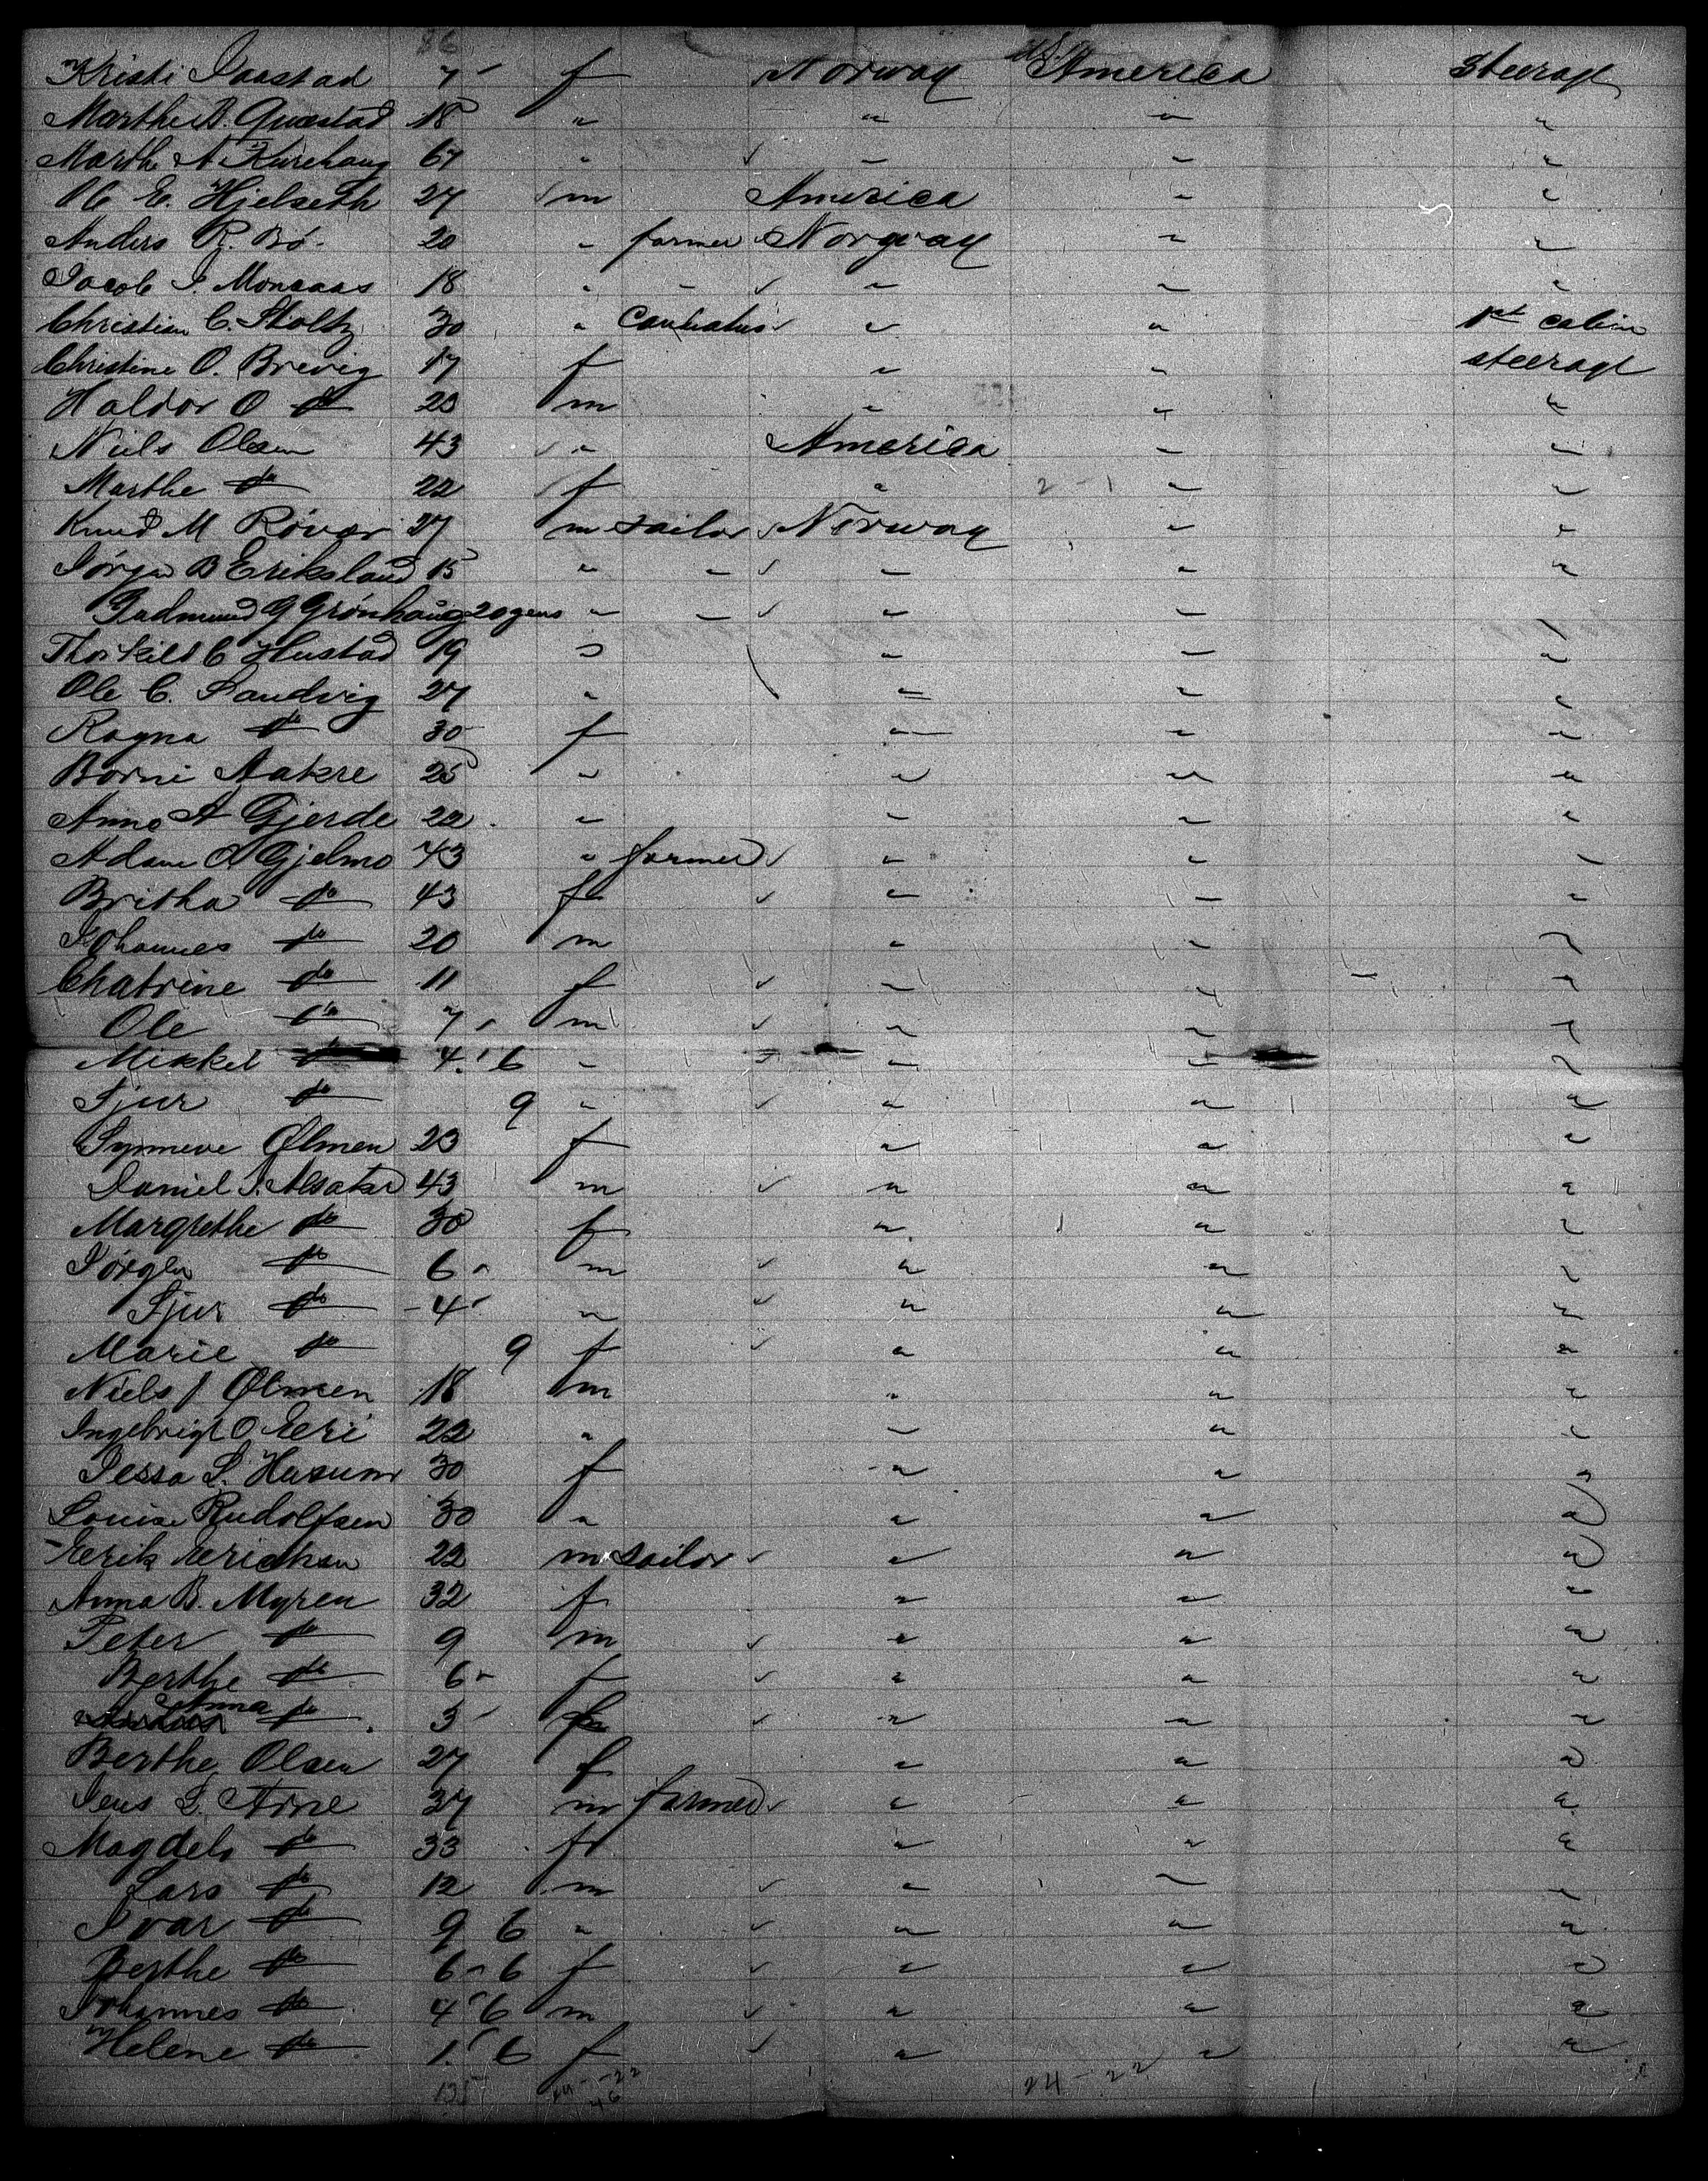 86
Kristi Paastad 7 " f Norway U.S. America Steerage
Marthe B. Quastad 18 " " " "
Marthe A 67 " ✓ " " "
Ole E. Hjelseth 27 ✓ m America " "
Anders R. Bö. 20 " farmer Norway " "
Jacob J. Monsaas 18 " " ✓ " " "
Christian C. Stoltz 30 " ✓ " " 1st cabin
Christine O. Brevig 17 f " " steerage
Haldor O do 23 m " " "
Niels Olsen 43 ✓ " America " "
Marthe do 22 ✓ f " 2 - 1 " "
Knud M Rövær 27 m sailor ✓ Norway " "
Jörgen B Eriksland 15 " " ✓ " " "
Gudmund G Grönhaug 20 years " " ✓ " " "
Thorkild C Hustad 19 " " " "
Ole C. Sandvig 27 " " " "
Ragna do 30 f " " "
Borni Aakre 25 " " " "
Anne A Gjerde 22 " " " "
Adam O Gjelmo 43 " farmer ✓ " " "
Britha do 43 f ✓ " " "
Johannes do 20 m " " "
Chatrine do 11 f ✓ " " "
Ole do 7 " m ✓ " " "
Mikkel do 4 " 6 " ✓ " " "
Sjur do 9 " ✓ " " "
Synneve Ølmen 23 f " " "
Daniel S. Alsaker 43 m ✓ " " "
Margrethe do 30 f " " "
Jörgen do 6 " m ✓ " " "
Sjur do 4 " " ✓ " " "
Marie do 9 f ✓ " " "
Niels J Ølmen 18 m " " "
Ingebrigt O Eeri 22 " " " "
Jessa S. Husum 30 f " " "
Louise Rudolfsen 30 " " " "
Eerik Eerichsen 22 m sailor ✓ " " "
Anna B. Myren 32 f " " "
Peter do 9 m ✓ " " "
Berthe do 6 " f ✓ " " "
Anna do 3 " f ✓ " " "
Berthe Olsen 27 f " " "
Jens L. Arne 37 m farmer ✓ " " "
Magdeli do 33 f " " "
Lars do 12 m ✓ " " "
Ivar do 9 6 " ✓ " " "
Berthe do 6 " 6 f ✓ " " "
Johannes do 4 " 6 m ✓ " " "
Helene do 1 " 6 f ✓ " " "
135 24 - 22 24 - 22
46